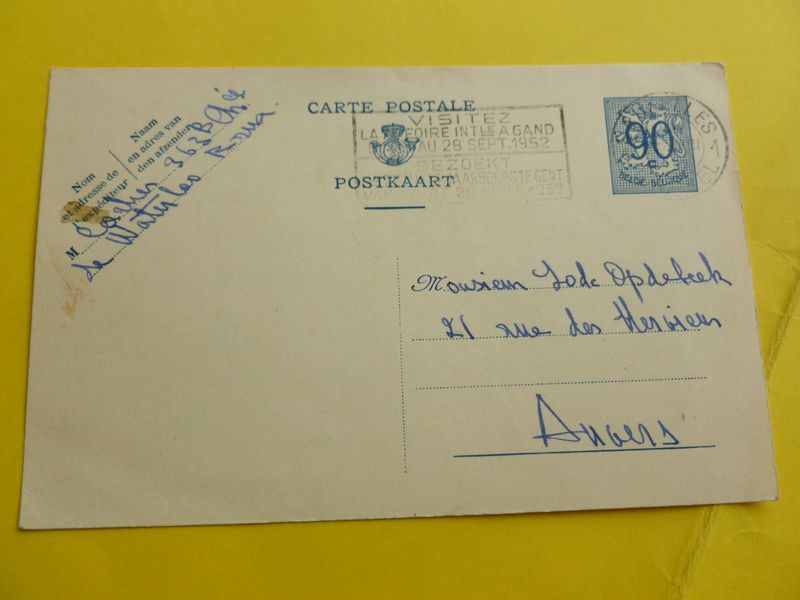 CARTE POSTALE
POSTKAART
VISITEZ
LA FOIRE INTLE A GAND
AU 28 SEPT. 1952
BEZOEKT
JAARBEURS TE GENT
28 SEPT. 1952
90
C
BELGIE-BELGIQUE
BRUXELLES 1
BRUSSEL
Nom
et adresse de
l'expéditeur
Naam
en adres van
den afzender
M
363B Ch ée
de Waterloo
Monsieur Jode Opdebeek
21 rue des
Anvers